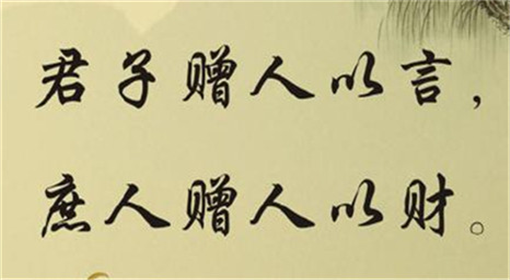 君子赠人以言，
庶人赠人以财。